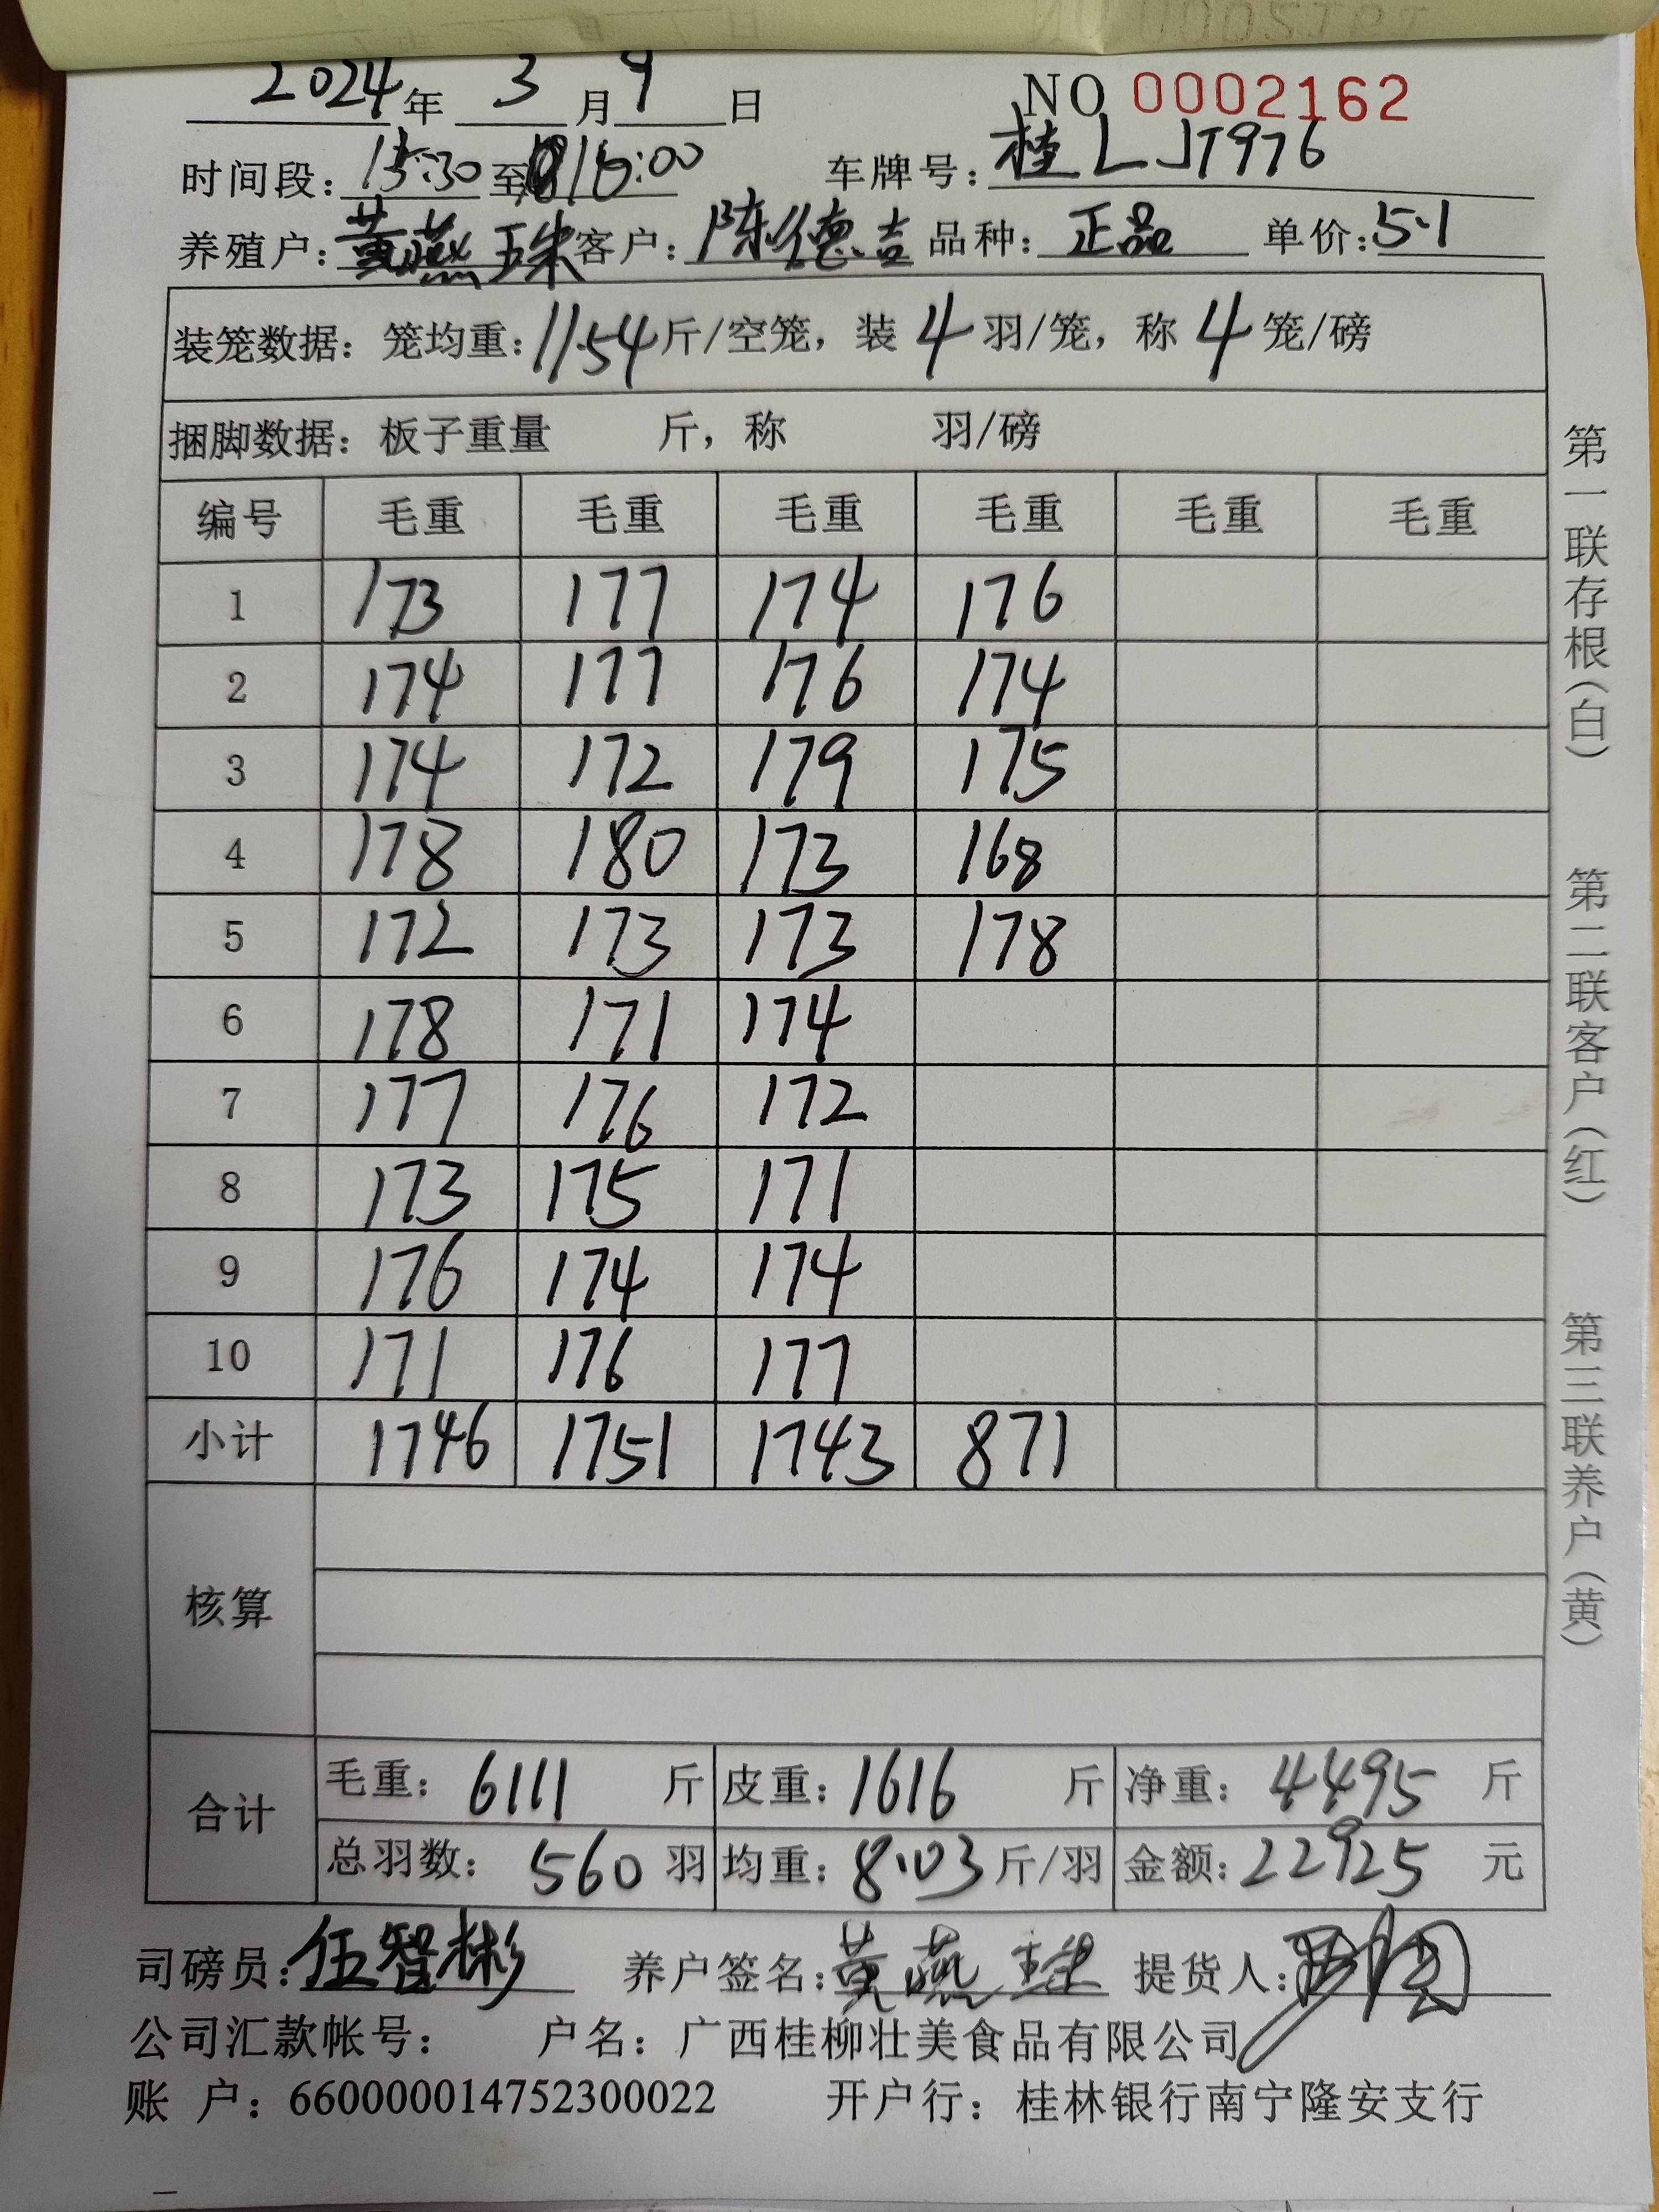 2024年 3月9日 NO 0002162
时间段: 15:30至16:00 车牌号: 桂LJT976
养殖户: 黄燕珠 客户: 陈德吉 品种: 正品 单价: 5.1
装笼数据: 笼均重: 11.54斤/空笼, 装 4 羽/笼, 称 4 笼/磅
捆脚数据: 板子重量 斤, 称 羽/磅
编号 毛重 毛重 毛重 毛重 毛重 毛重
1 173 177 174 176
2 174 177 176 174
3 174 172 179 175
4 178 180 173 168
5 172 173 173 178
6 178 171 174
7 177 176 172
8 173 175 171
9 176 174 174
10 171 176 177
小计 1746 1751 1743 871
核算
合计 毛重: 6111 斤 皮重: 1616 斤 净重: 4495 斤
总羽数: 560 羽 均重: 8.03 斤/羽 金额: 22925 元
司磅员: 伍智彬 养户签名: 黄燕珠 提货人:
公司汇款帐号: 户名: 广西桂柳壮美食品有限公司
账 户: 660000014752300022 开户行: 桂林银行南宁隆安支行
第一联存根(白) 第二联客户(红) 第三联养户(黄)